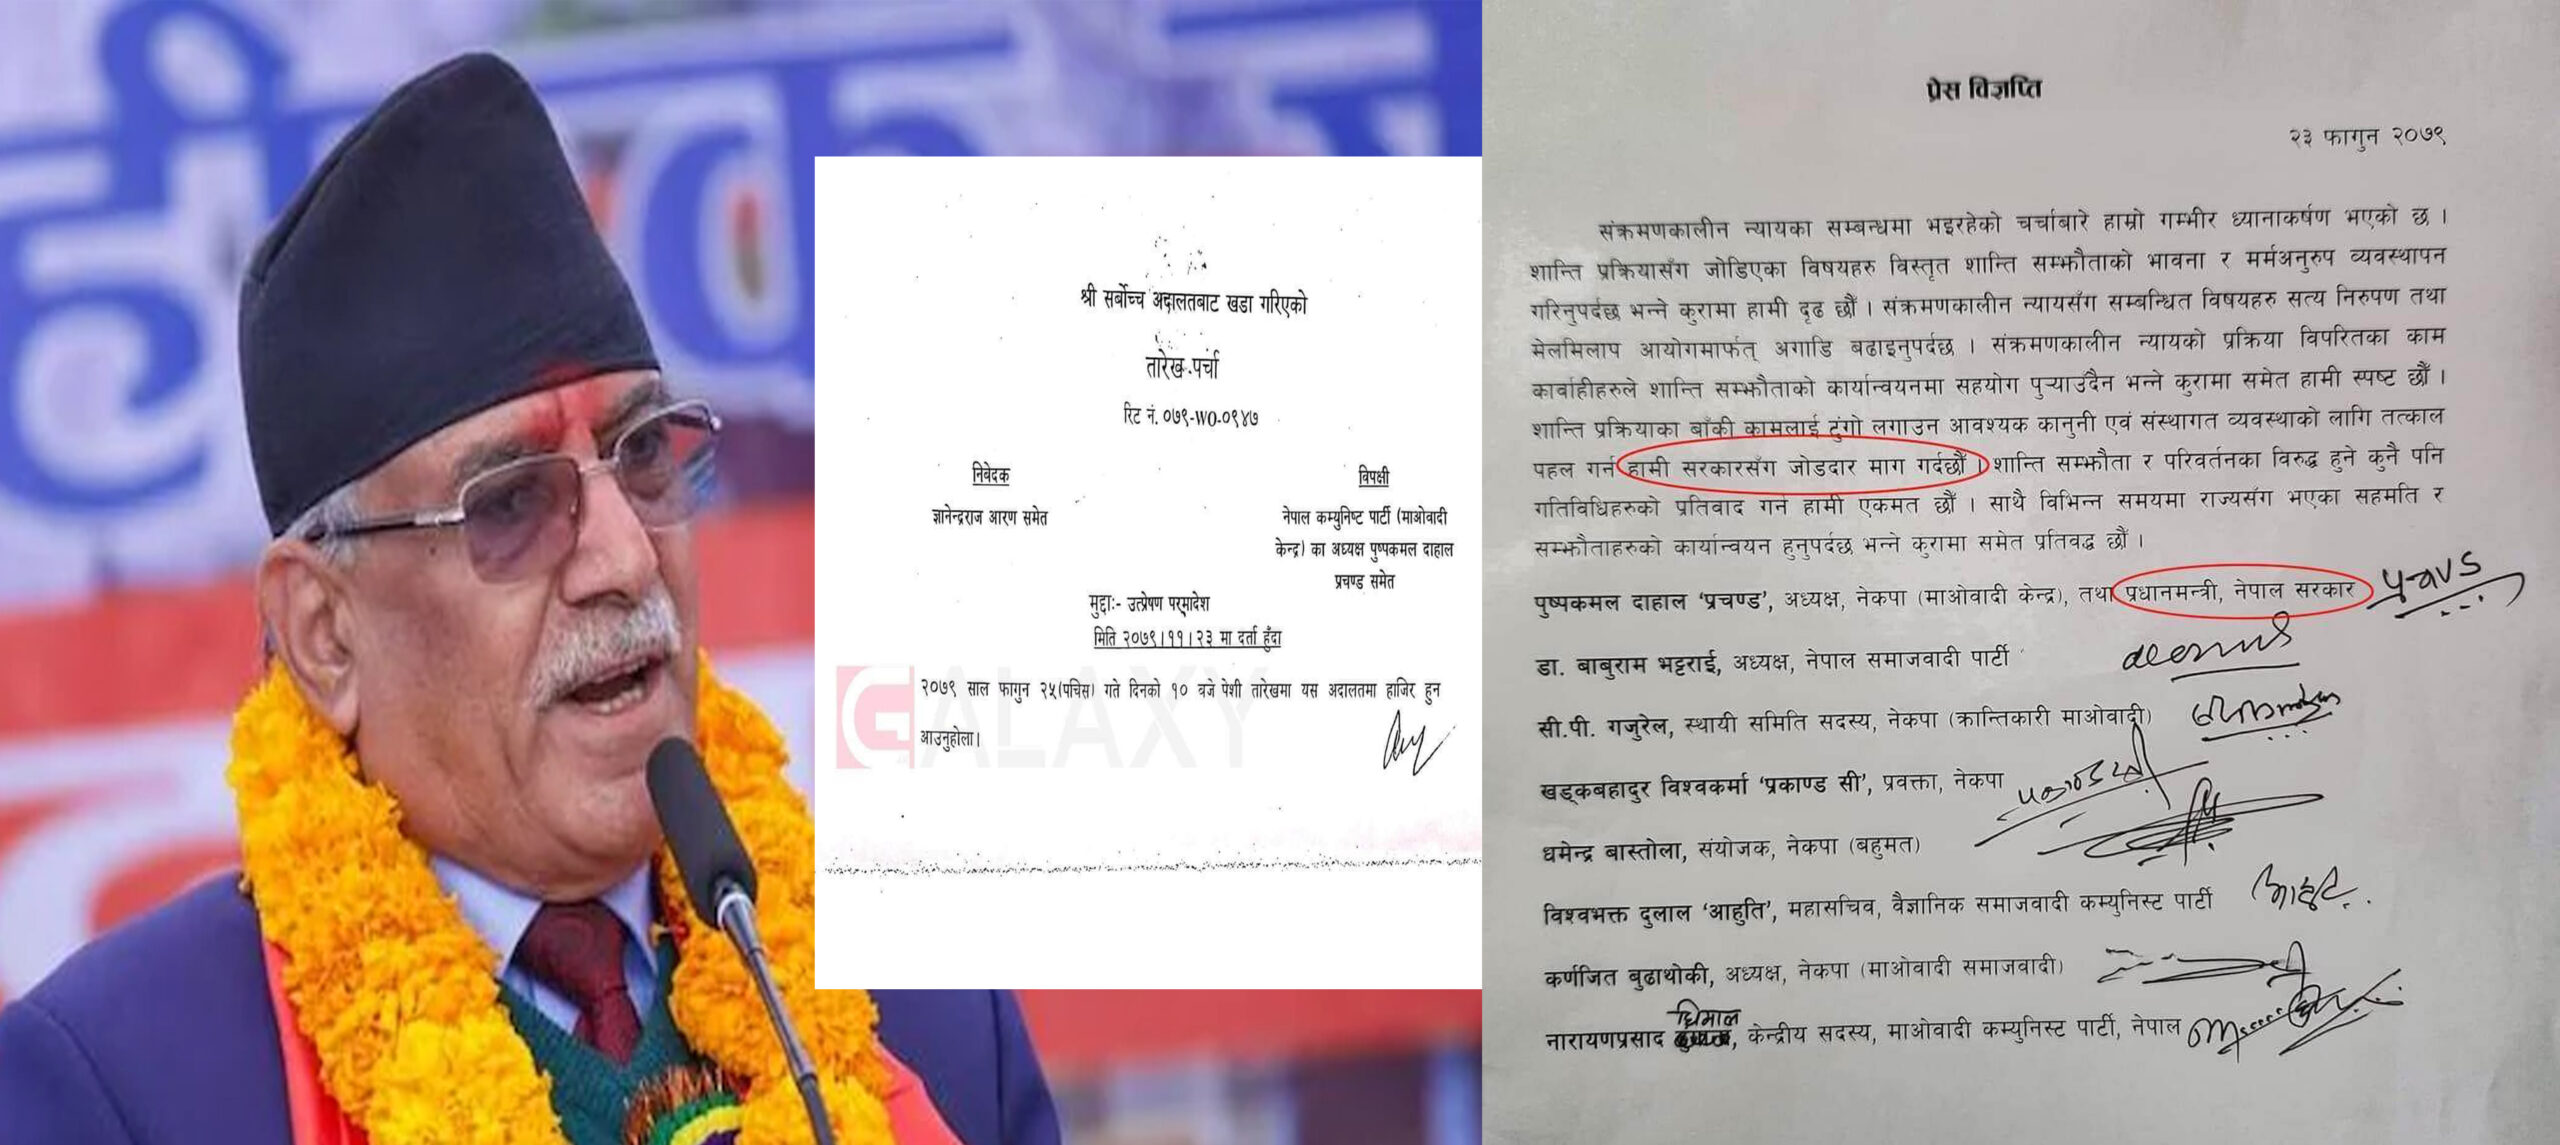 श्री सर्बोच्च अदालतबाट खडा गरिएको
तारेख-पर्चा
रिट नं. ०७९-WO-०९४७
निवेदक
विपक्षी
ज्ञानेन्द्रराज आरण समेत
नेपाल कम्युनिष्ट पार्टी (माओवादी
केन्द्र) का अध्यक्ष पुष्पकमल दाहाल
प्रचण्ड समेत
मुद्दाः- उत्प्रेषण परमादेश
मिति २०७९।११।२३ मा दर्ता हुँदा
२०७९ साल फागुन २५(पचिस) गते दिनको १० वजे पेशी तारेखमा यस अदालतमा हाजिर हुन
आउनुहोला।
GALAXY
प्रेस विज्ञप्ति
२३ फागुन २०७९
संक्रमणकालीन न्यायका सम्बन्धमा भइरहेको चर्चाबारे हाम्रो गम्भीर ध्यानाकर्षण भएको छ ।
शान्ति प्रक्रियासँग जोडिएका विषयहरु विस्तृत शान्ति सम्झौताको भावना र मर्मअनुरुप व्यवस्थापन
गरिनुपर्दछ भन्ने कुरामा हामी दृढ छौं । संक्रमणकालीन न्यायसँग सम्बन्धित विषयहरु सत्य निरुपण तथा
मेलमिलाप आयोगमार्फत् अगाडि बढाइनुपर्दछ । संक्रमणकालीन न्यायको प्रक्रिया विपरितका काम
कार्वाहीहरुले शान्ति सम्झौताको कार्यान्वयनमा सहयोग पुऱ्याउँदैन भन्ने कुरामा समेत हामी स्पष्ट छौं ।
शान्ति प्रक्रियाका बाँकी कामलाई टुंगो लगाउन आवश्यक कानुनी एवं संस्थागत व्यवस्थाको लागि तत्काल
पहल गर्न हामी सरकारसँग जोडदार माग गर्दछौं । शान्ति सम्झौता र परिवर्तनका विरुद्ध हुने कुनै पनि
गतिविधिहरुको प्रतिवाद गर्न हामी एकमत छौं । साथै विभिन्न समयमा राज्यसंग भएका सहमति र
सम्झौताहरुको कार्यान्वयन हुनुपर्दछ भन्ने कुरामा समेत प्रतिवद्ध छौं ।
पुष्पकमल दाहाल ‘प्रचण्ड’, अध्यक्ष, नेकपा (माओवादी केन्द्र), तथा प्रधानमन्त्री, नेपाल सरकार
डा. बाबुराम भट्टराई, अध्यक्ष, नेपाल समाजवादी पार्टी
सी.पी. गजुरेल, स्थायी समिति सदस्य, नेकपा (क्रान्तिकारी माओवादी)
खड्कबहादुर विश्वकर्मा ‘प्रकाण्ड सी’, प्रवक्ता, नेकपा
धमेन्द्र बास्तोला, संयोजक, नेकपा (बहुमत)
विश्वभक्त दुलाल ‘आहुति’, महासचिव, वैज्ञानिक समाजवादी कम्युनिस्ट पार्टी
कर्णजित बुढाथोकी, अध्यक्ष, नेकपा (माओवादी समाजवादी)
नारायणप्रसाद घिमाल, केन्द्रीय सदस्य, माओवादी कम्युनिस्ट पार्टी, नेपाल